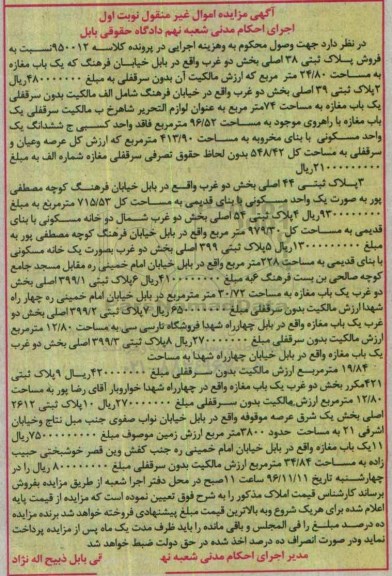 آگهی مزایده اموال غیر منقول نوبت اول
اجرای احکام مدنی شعبه نهم دادگاه حقوقی بابل
در نظر دارد جهت وصول محکوم به وهزینه اجرایی در پرونده کلاسه ۹۵۰۰۱۲نسبت به
فروش پلاک ثبتی ۳۸ اصلی بخش دو غرب واقع در بابل خیابان فرهنگ که یک باب مغازه
به مساحت ۲۴/۸۰ متر مربع که ارزش مالکیت آن بدون سرقفلی به مبلغ ۴۸۰۰۰۰۰۰۰ریال
۲پلاک ثبتی ۳۹ اصلی بخش دو غرب واقع در بابل خیابان فرهنگ شامل الف مالکیت بدون سرقفلی
یک باب مغازه به مساحت ۷۴متر مربع به عنوان لوازم التحریر شاهرخ ب مالکیت سرقفلی یک
باب مغازه با راهروی موجود به مساحت ۹۶/۵۲ مترمربع فاقد واحد کسبی ج ششدانگ یک
واحد مسکونی با بنای مخروبه به مساحت ۴۱۳/۹۰ مترمربع که ارزش کل عرصه وعیان و
سرقفلی به مساحت کل ۵۴۸/۴۲ بدون لحاظ حقوق تصرفی سرقفلی مغازه شماره الف به مبلغ
ریال
۳پلاک ثبتی ۴۴ اصلی بخش دو غرب واقع در بابل خیابان فرهنگ کوچه مصطفی
پور به صورت یک واحد مسکونی با بنای قدیمی به مساحت کل ۷۱۵/۵۳ مترمربع به مبلغ
ریال ۴پلاک ثبتی ۵۴ اصلی بخش دو غرب شمال دو خانه مسکونی با بنای
قدیمی به مساحت کل ۹۷۹/۳۰ متر مربع واقع در بابل خیابان فرهنگ کوچه مصطفی پور به
مبلغ ریال ۵پلاک ثبتی ۳۹۹ اصلی بخش دو غرب بصورت یک خانه مسکونی
با بنای قدیمی به مساحت ۲۲۸متر مربع واقع در بابل خیابان امام خمینی ره مقابل مسجد جامع
کوچه صالحی بن بست فرهنگ ۶به مبلغ ریال ۶پلاک ثبتی ۳۹۹/۱ اصلی بخش
دو غرب یک باب مغازه به مساحت ۳۰/۷۲ متر مترمربع در بابل خیابان امام خمینی ره چهار راه
شهدا ارزش مالکیت بدون سرقفلی مبلغ ریال ۷پلاک ثبتی ۳۹۹/۲ اصلی بخش دو
غرب یک باب مغازه واقع در بابل چهارراه شهدا فروشگاه تارسی سی به مساحت ۱۲/۸۰ مترمربع
ارزش مالکیت بدون سرقفلی مبلغ ۲۷۰۰۰۰۰۰۰۰ریال ۸پلاک ثبتی ۳۹۹/۳ اصلی بخش دو غرب
یک باب مغازه واقع در بابل خیابان چهارراه شهدا به مساحت
۱۹/۸۴ مترمربع ارزش مالکیت بدون سرقفلی مبلغ ۴۲۰۰۰۰۰۰۰۰ریال ۹پلاک ثبتی
۴۲۱مکرر بخش دو غرب یک باب مغازه واقع در چهارراه شهدا خواروبار آقای رضا پور به مساحت
۱۲/۸۰ مترمربع ارزش مالکیت بدون سرقفلی مبلغ ۲۷۰۰۰۰۰۰۰۰ریال ۱۰پلاک ثبتی ۲۶۱۲
اصلی بخش یک شرق عرصه موقوفه واقع در بابل خیابان نواب صفوی جنب مبل نتاج وخیابان
اشرفی ۲۱ به مساحت حدود ۳۸۰۰متر مربع ارزش زمین موصوف مبلغ ریال
۱۱یک باب مغازه واقع در بابل خیابان امام خمینی ره جنب کفش وین قصر خوشبختی حبیب
زاده به مساحت ۳۴/۸۴ مترمربع ارزش مالکیت بدون سرقفلی مبلغ ریال را در
چهارشنبه تاریخ ۹۶/۱۱/۱۱ ساعت ۱۱صبح در محل دفتر اجرا شعبه از طریق مزایده بفروش
برساند کارشناس قیمت املاک مذکور را به شرح فوق تعیین نموده است که مزایده از قیمت پایه
اعلام شده برای هریک شروع وبه بالاترین قیمت مبلغ پیشنهادی فروخته خواهد شد برنده مزایده
ده درصد مبلغ را فی المجلس و باقی مانده را باید ظرف مدت یک ماه پس از مزایده پرداخت
نماید ودر صورت انصراف ده درصد اخذ شده در حق دولت ضبط خواهد شد
مدیر اجرای احکام مدنی شعبه نه قی بابل ذبیح اله نژاد